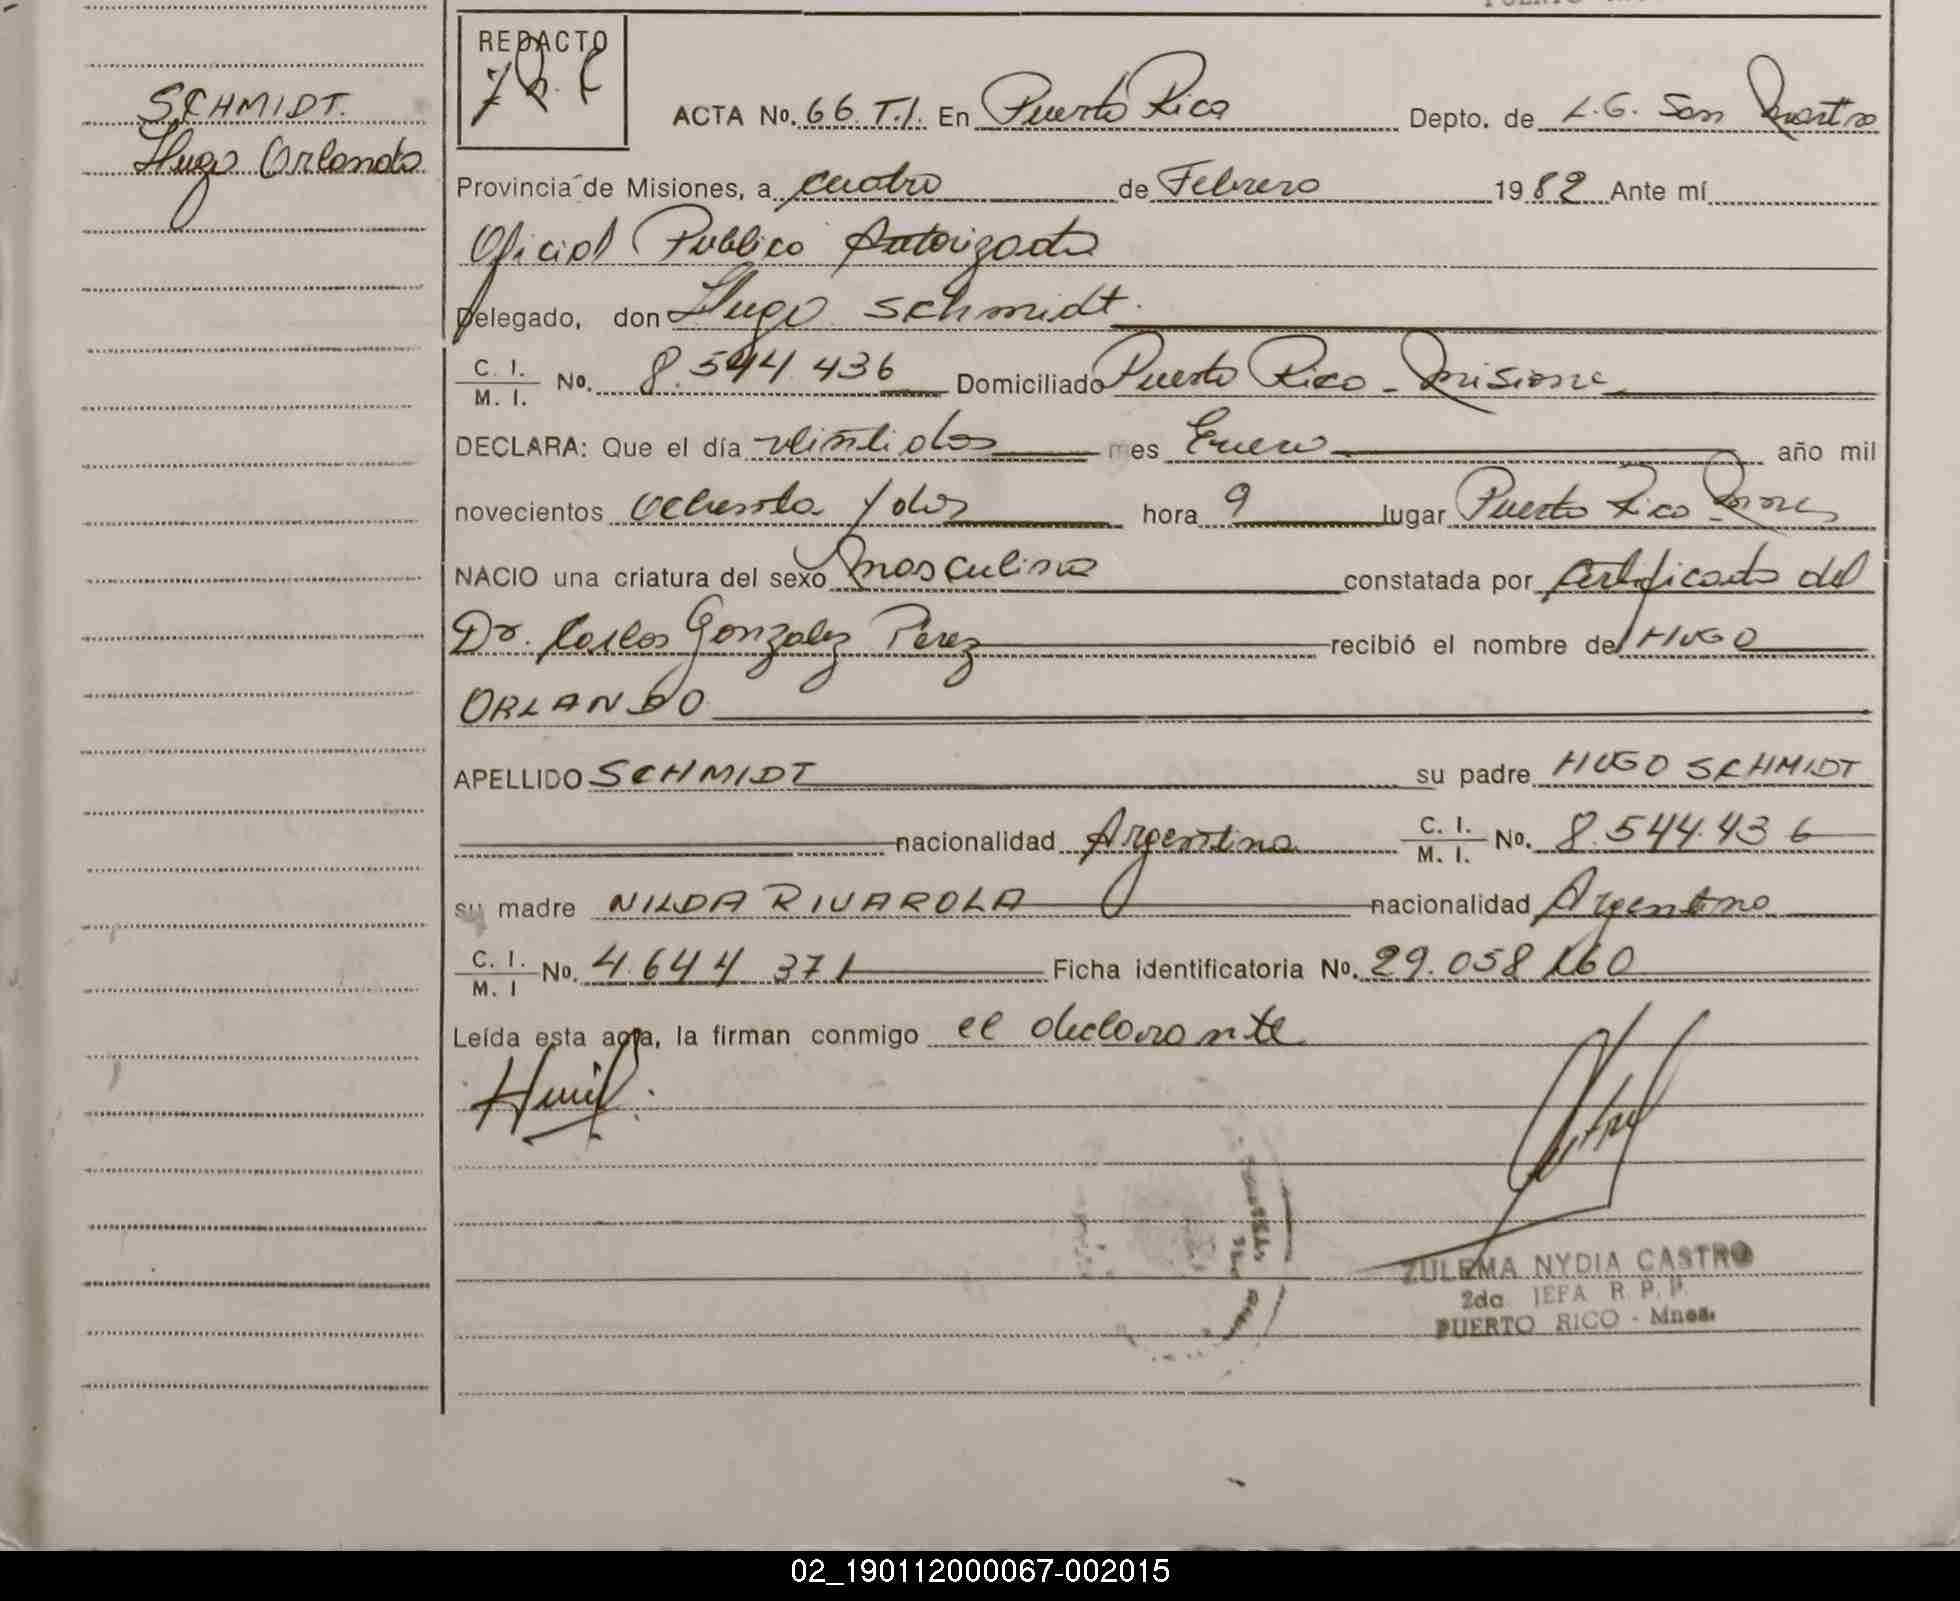 SCHMIDT.
Hugo Orlando
REDACTO
ACTA No. 66. T.I. En Puerto Rico Depto. de L.G. San Martin
Provincia de Misiones, a cuatro de Febrero 1982 Ante mí
Oficial Publico Autorizado
Delegado, don Hugo Schmidt.
C. I. / M. I. No. 8.544.436 Domiciliado Puerto Rico - Misiones
DECLARA: Que el día veintidos mes Enero año mil
novecientos ochenta y dos hora 9 lugar Puerto Rico Mnes
NACIO una criatura del sexo masculino constatada por certificado del
Dr. Carlos Gonzalez Perez recibió el nombre de HUGO
ORLANDO
APELLIDO SCHMIDT su padre HUGO SCHMIDT
nacionalidad Argentina C. I. / M. I. No. 8.544.436
su madre NILDA RIVAROLA nacionalidad Argentina
C. I. / M. I No. 4.644 371 Ficha identificatoria No. 29.058 160
Leída esta acta, la firman conmigo el declarante
ZULEMA NYDIA CASTRO
2da JEFA R. P. P.
PUERTO RICO - Mnes.
02_190112000067-002015